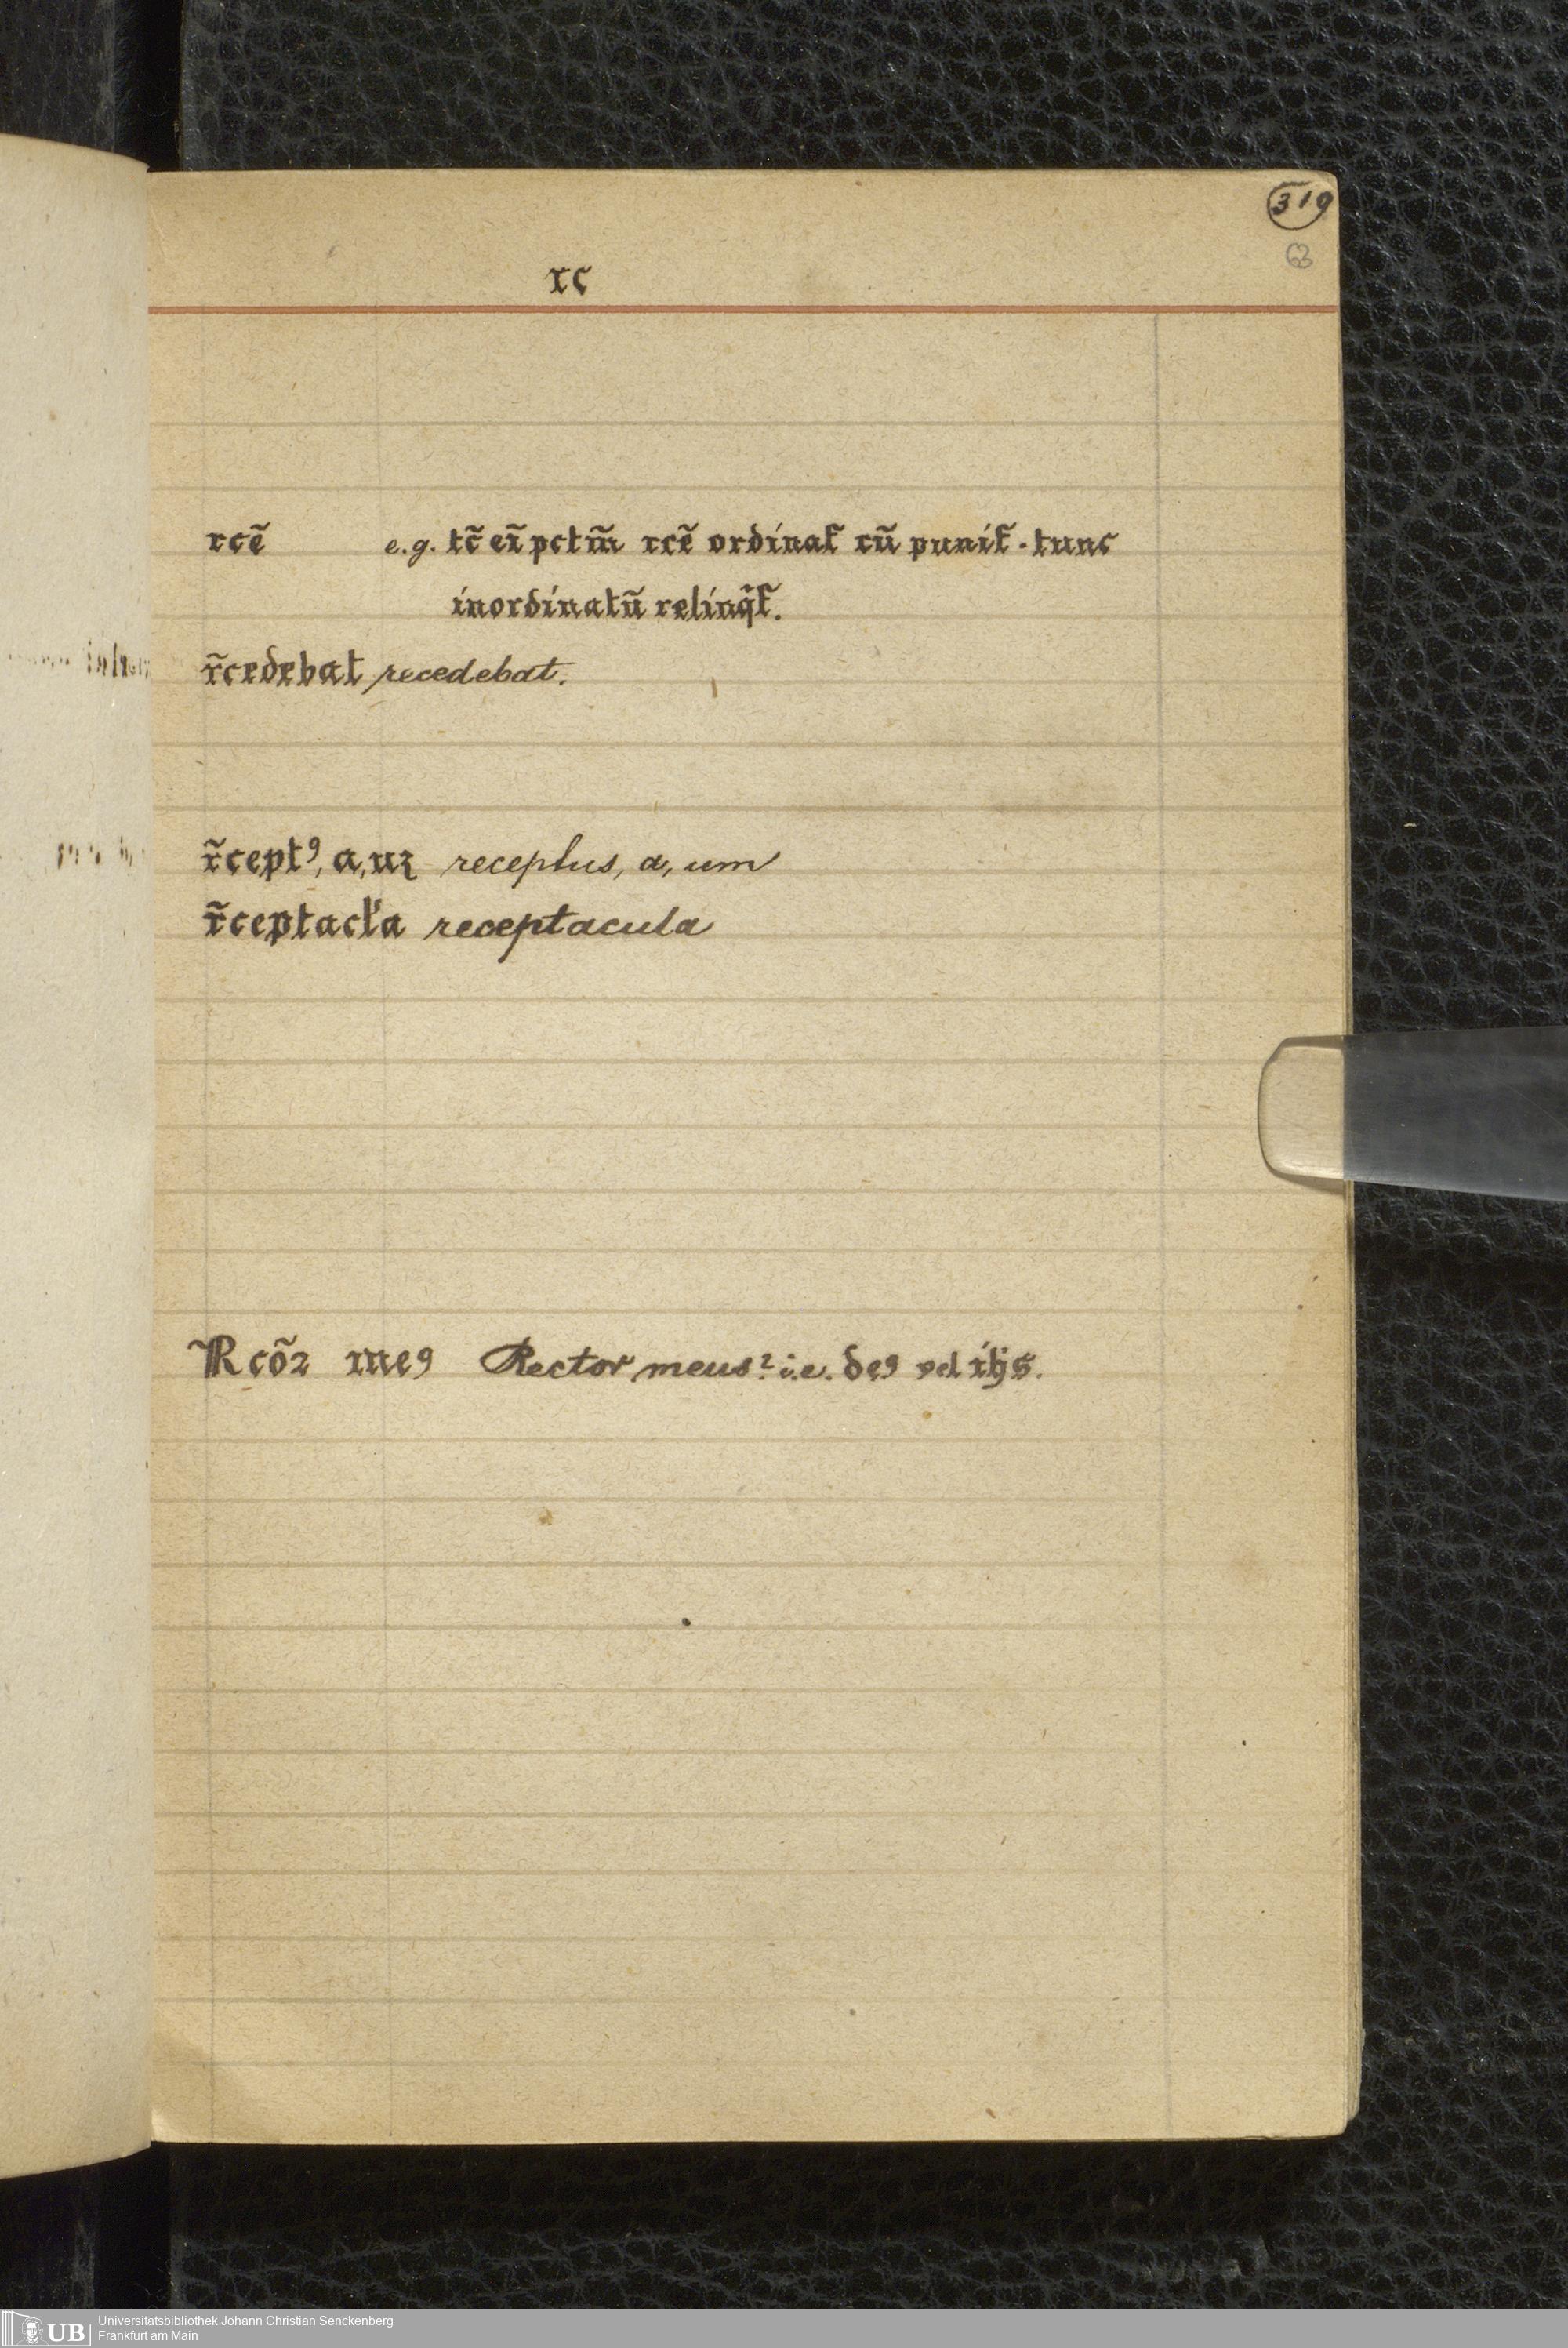 319
63
rc
rcẽ e.g. tc̃ eĩ pctm̃ rcẽ ordinat̃ cũ punit̃ . tunc
inordinatũ relinq̃t̃.
r̃cedebat recedebat.
r̃ceptꝯ, a, uꝫ receptus, a, um
r̃ceptacl'a receptacula
R̃ cõꝛ meꝯ Rector meus? i.e. deꝯ vel ihs.
UB
Universitätsbibliothek Johann Christian Senckenberg
Frankfurt am Main